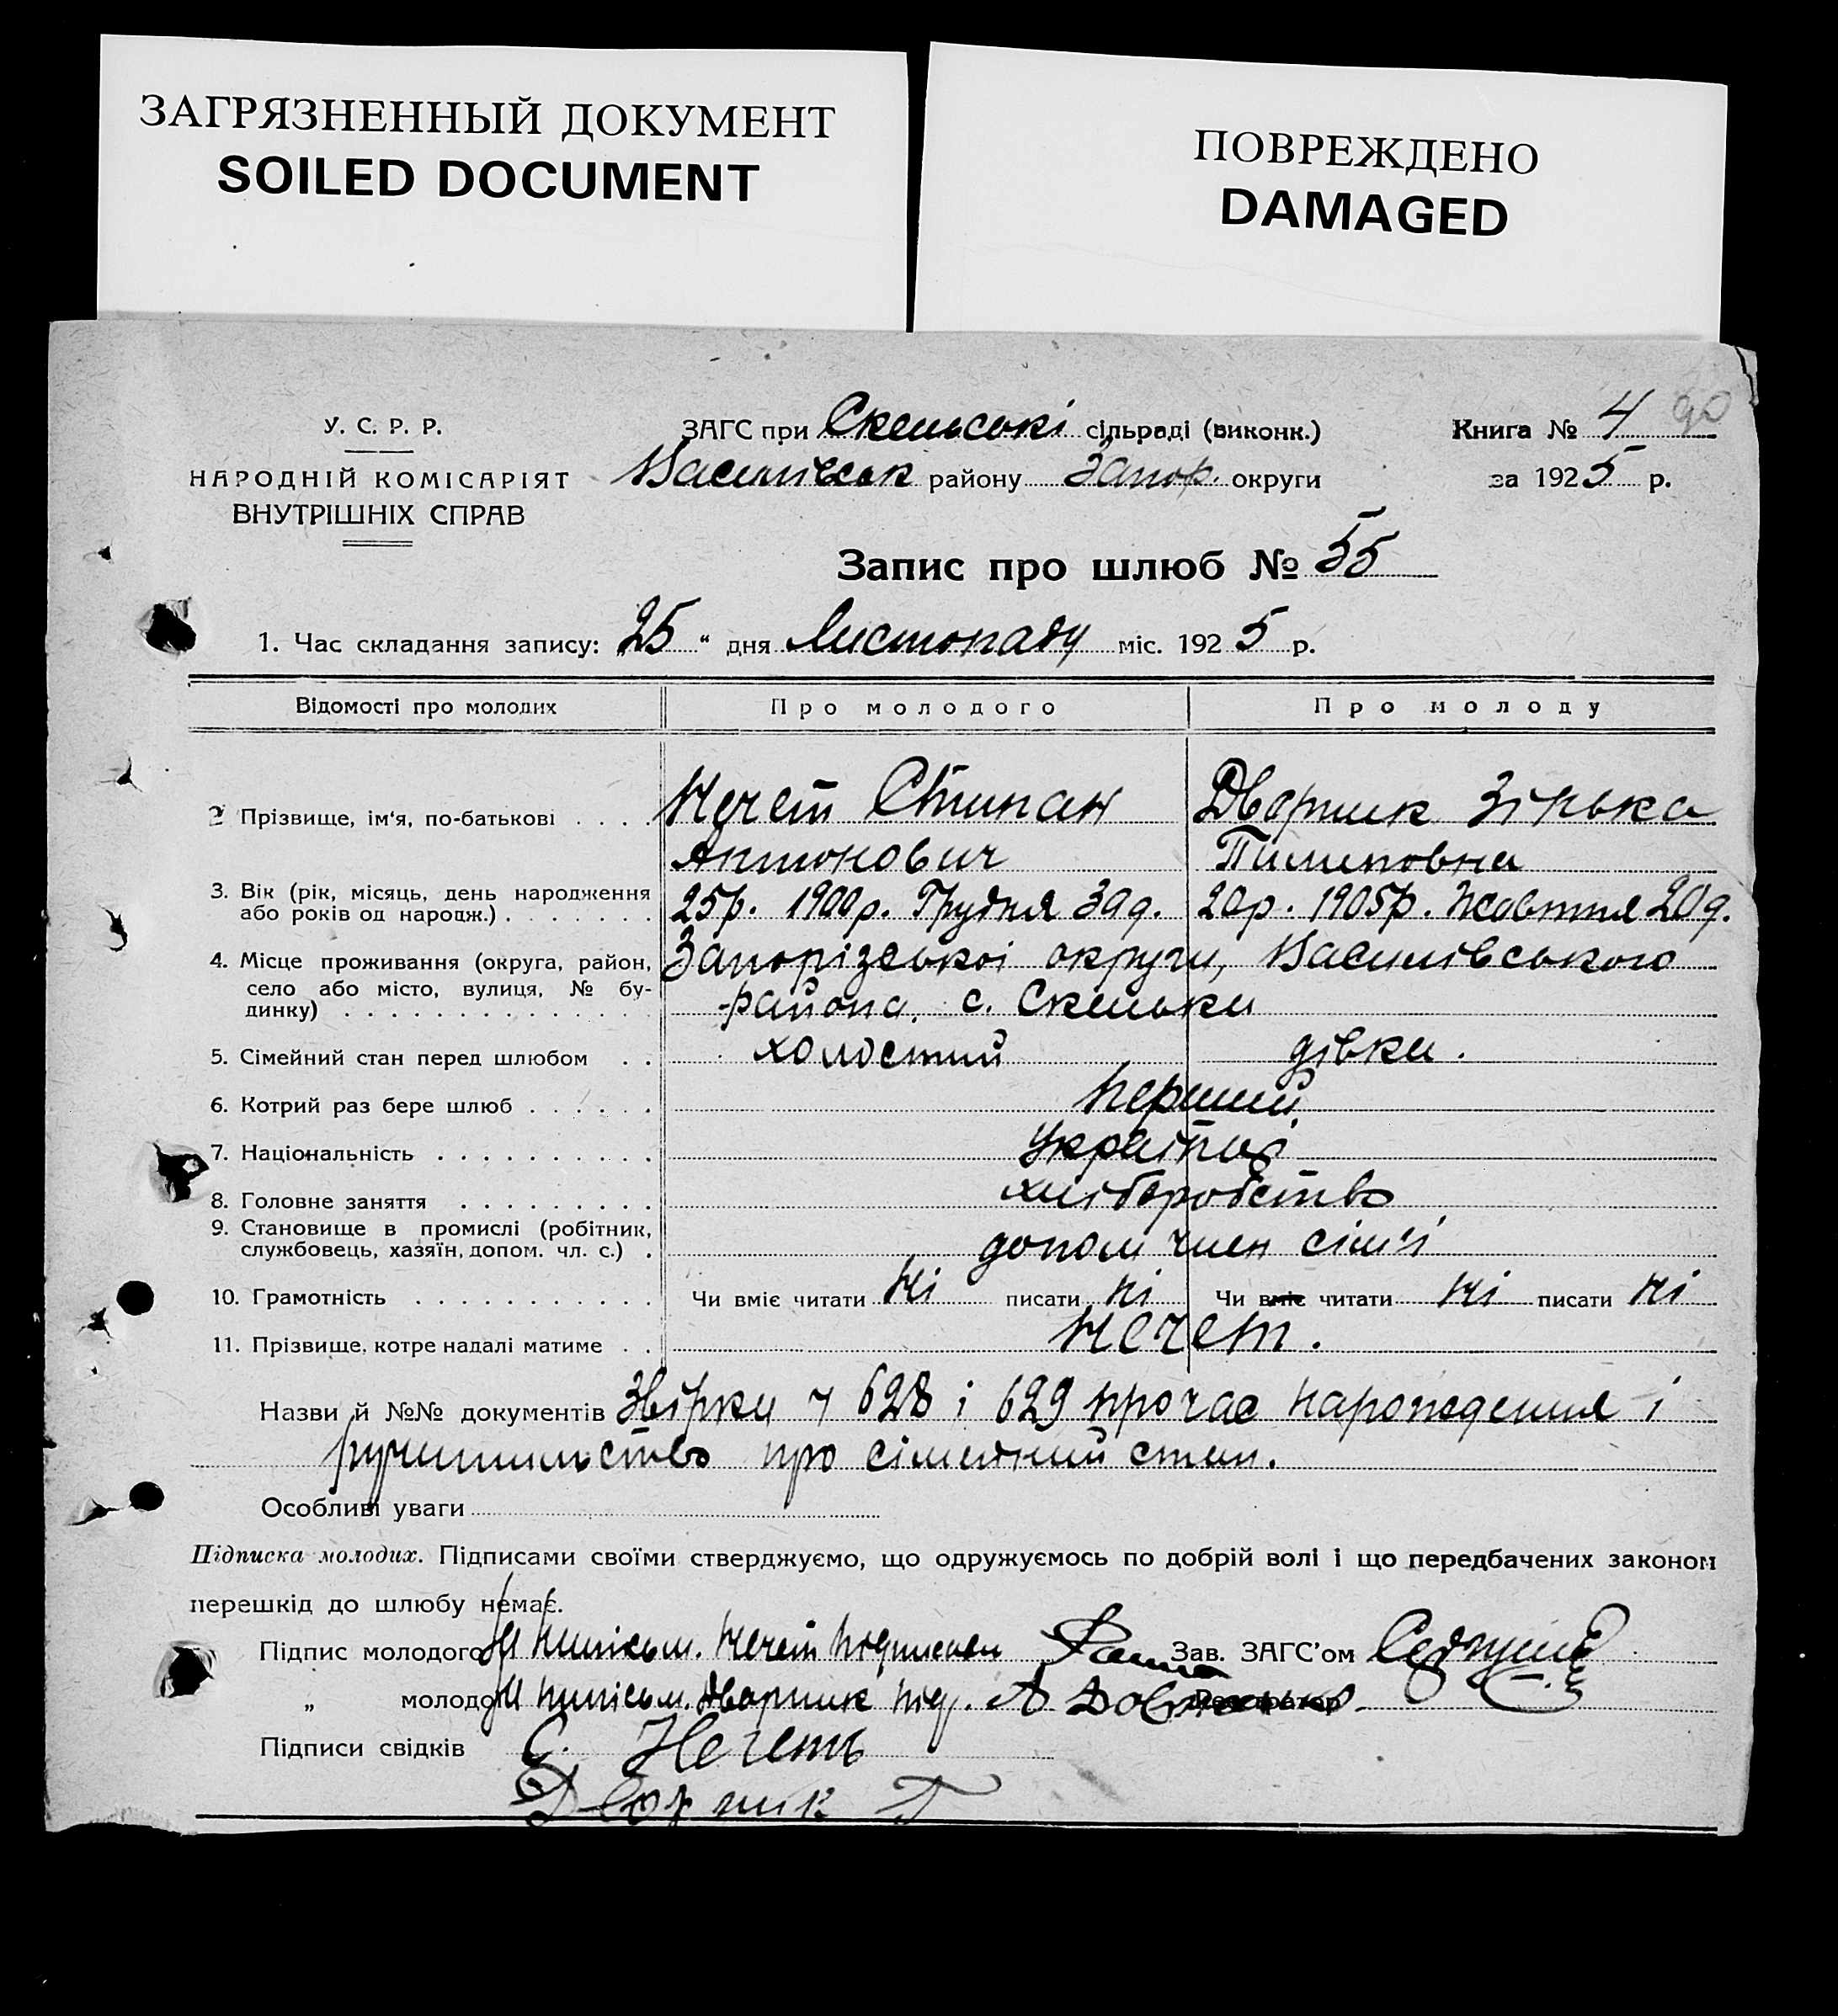 ЗАГРЯЗНЕННЫЙ ДОКУМЕНТ
SOILED DOCUMENT
ПОВРЕЖДЕНО
DAMAGED
У. С. Р. Р.
НАРОДНІЙ КОМІСАРІЯТ
ВНУТРІШНІХ СПРАВ
ЗАГС при Скельські сільраді (виконк.)
Василівськ району Запор. округи
Книга № 4 90
за 1925 р.
Запис про шлюб № 55
1. Час складання запису: „25“ дня Листопаду міс. 1925 р.
Відомості про молодих Про молодого Про молоду
2 Прізвище, ім'я, по-батькові . . . . Нечет Стипан Дворник Зінька
Антонович Пилиповна
3. Вік (рік, місяць, день народження
або років од народж.) . . . . . . . 25р. 1900р. Грудня 30д. 20р. 1905р. Жовтня 20д.
4. Місце проживання (округа, район, Запорізської округи, Василівського
село або місто, вулиця, № бу-
динку) . . . . . . . . . . . . . . района. с. Скельки
5. Сімейний стан перед шлюбом . . холостий дівка.
6. Котрий раз бере шлюб . . . . . . перший
7. Національність . . . . . . . . . .
8. Головне заняття . . . . . . . . . хліборобство
9. Становище в промислі (робітник,
службовець, хазяїн, допом. чл. с.) . допом член сім'ї
10. Грамотність . . . . . . . . . . . Чи вміє читати Ні писати ні Чи вміє читати Ні писати Ні
11. Прізвище, котре надалі матиме . . Нечет.
Назви й №№ документів Звірки ч 628 і 629 про час нарождения і
ручительство про сімейний стан.
Особливі уваги
Підписка молодих. Підписами своїми стверджуємо, що одружуємось по добрій волі і що передбачених законом
перешкід до шлюбу немає.
Підпис молодого Нечет Зав. ЗАГС'ом
„ молодої Дворник Реєстратор
Підписи свідків С. Нечеть
Дворник Г